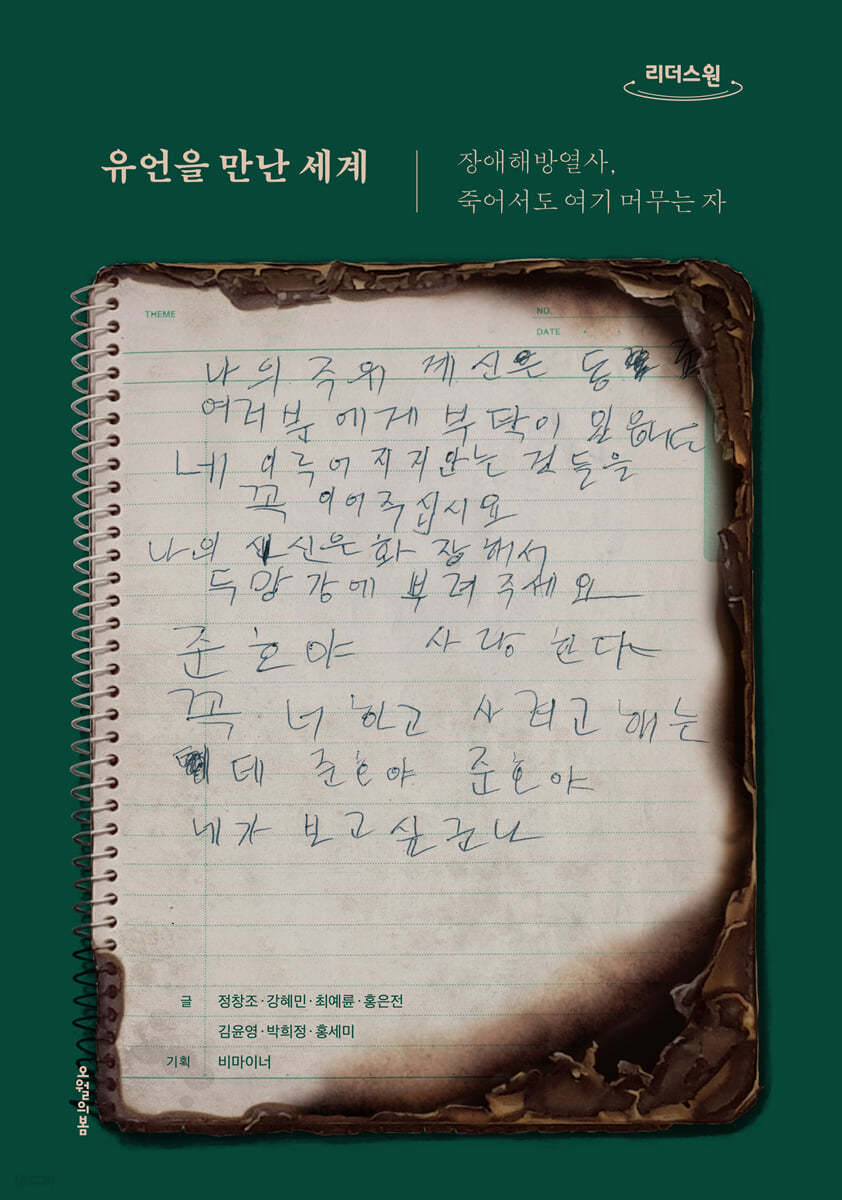 리더스원
유언을 만난 세계
장애해방열사,
죽어서도 여기 머무는 자
THEME
NO.
DATE
나의 주위 계신은 동
여러분에게 부탁이 있음니다
네 이루어지지안는 것들을
꼭 이어주십시요
나의 시신은 화장해서
두망강에 부려주세요
준호야 사랑한다
꼭 너하고 사려고 해는
데 준호야 준호야
네가 보고싶군나
글 정창조·강혜민·최예륜·홍은전
김윤영·박희정·홍세미
기획 비마이너
오월의봄